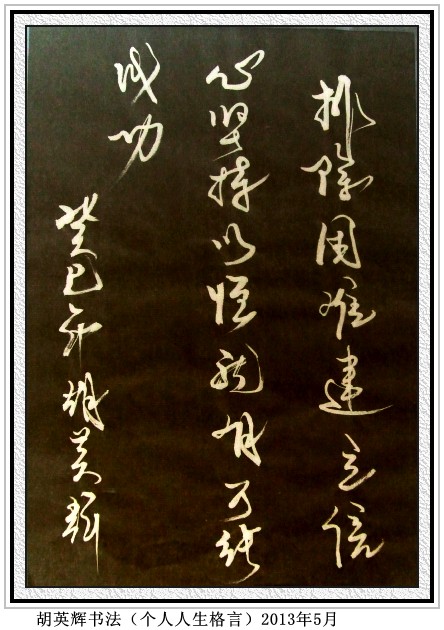 排除困难建立信
心坚持以恒就有可能
成功
癸巳年胡英辉
胡英辉书法（个人人生格言）2013年5月